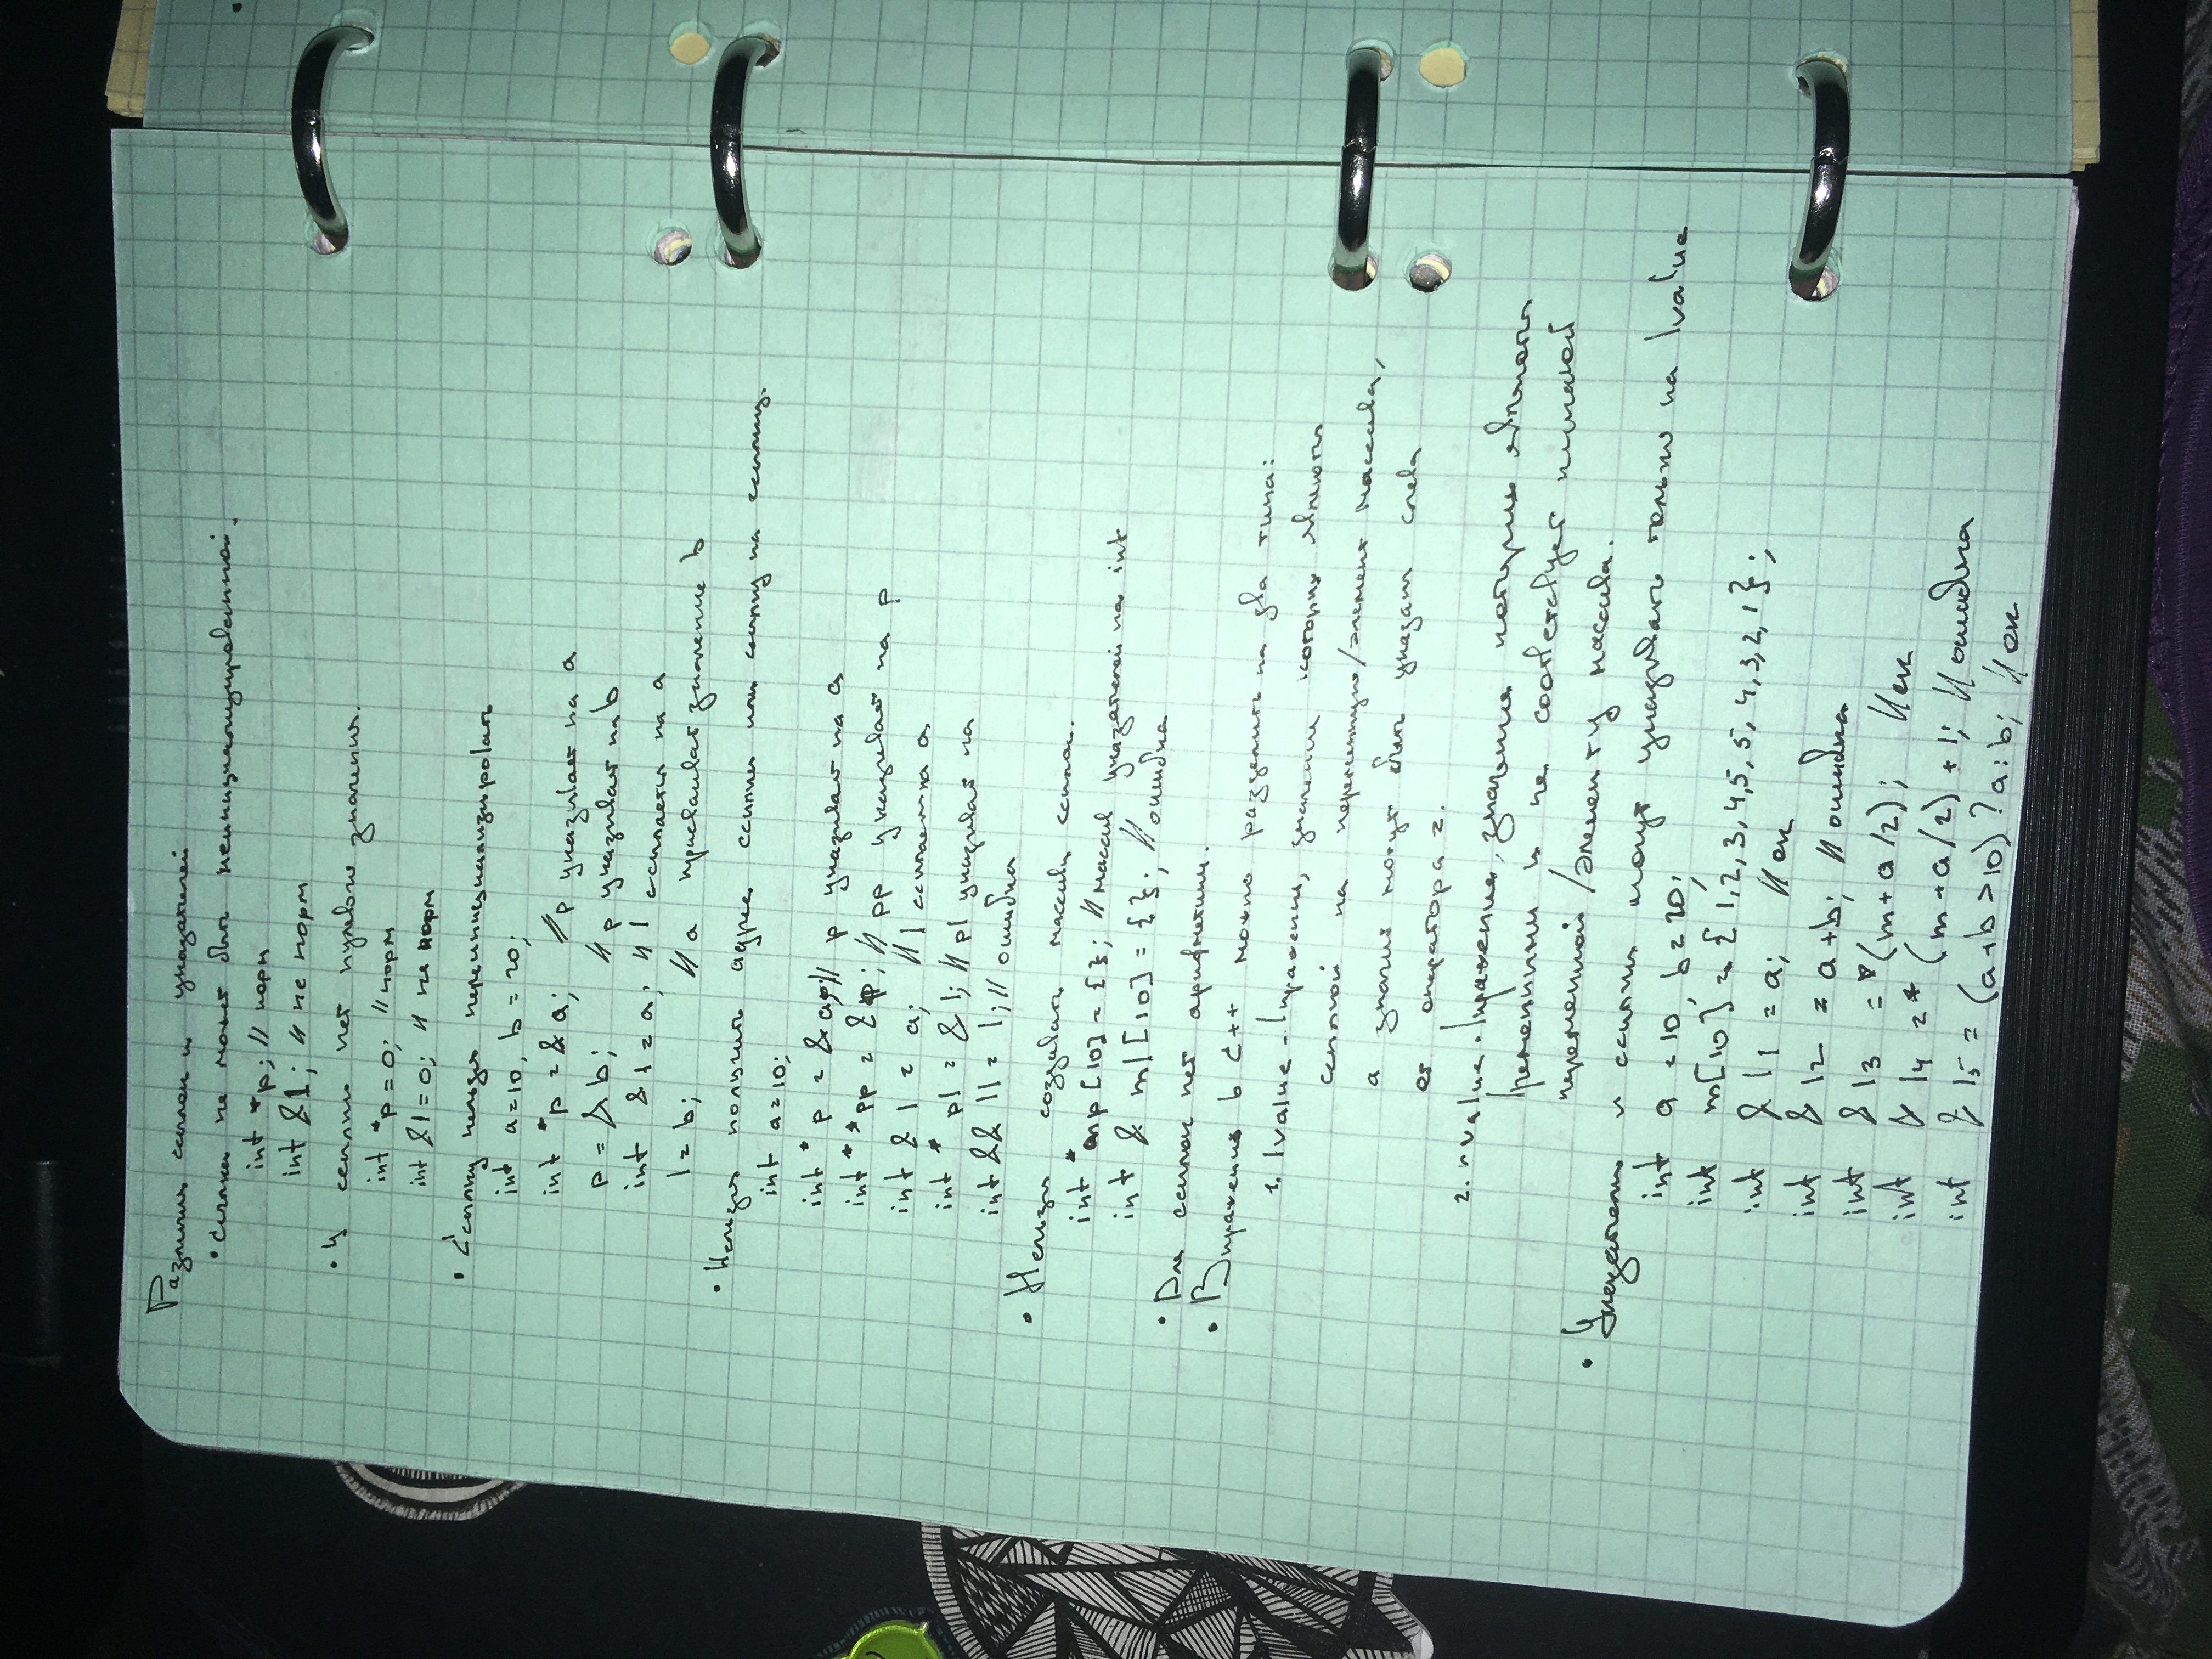 Различия ссылок и указателей
• Ссылка не может быть неинициализированной.
int *p; // норм
int &l; // не норм
• У ссылки нет нулевого значения.
int *p = 0; // норм
int &l = 0; // не норм
• Ссылку нельзя переинициализировать
int a=10, b = 20;
int *p = &a; // p указывает на a
p = &b; // p указывает на b
int &l = a; // l ссылается на a
l = b; // a присваивает значение b
• Нельзя получить адрес ссылки или ссылку на ссылку.
int a=10;
int * p = &a; // p указывает на a
int **pp = &p; // pp указывает на p
int & l = a; // l ссылается на a
int * pl = & l; // pl указывает на
int && ll = l; // ошибка
• Нельзя создавать массивы ссылок.
int *mp [10] = {}; // массив указателей на int
int & ml [10] = {}; // ошибка
• Для ссылок нет арифметики.
• Выражения в C++ можно разделить на два типа:
1. lvalue - выражения, значения которых являются
ссылкой на переменную/элемент массива,
а значит могут быть указаны слева
от оператора =.
2. rvalue - выражения, значения которых являются
временными и не соответствует никакой
переменной/элементу массива.
• Указатели и ссылки могут указывать только на lvalue
int a = 10, b = 20;
int m[10] = { 1,2,3,4,5,5,4,3,2,1 };
int & l1 = a; // ок
int & l2 = a+b; // ошибка
int & l3 = *(m+a/2); // ок
int & l4 = * (m+a/2) + 1; // ошибка
int & l5 = (a+b>10) ? a : b; // ок